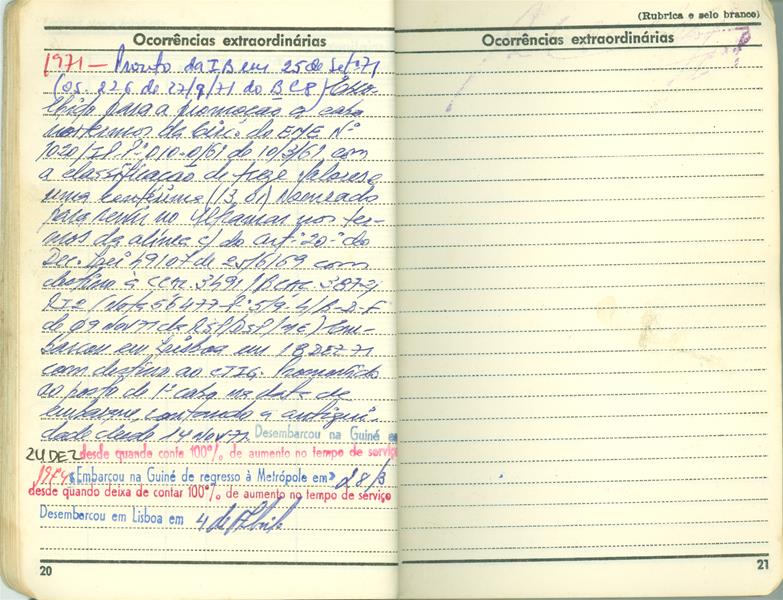 Ocorrências extraordinárias
1971 — Pronto da IB em 25 de Set. 71
(OS. 226 de 27/9/71 do BC8) Esco-
lhido para a promoção a cabo
nos termos da Circ. do EME Nº
1020/IP. Pº 010-0/61 de 10/3/61 com
a classificação de treze valores e
uma centésima (13,01) Nomeado
para servir no Ultramar nos ter-
mos da alínea c) do artº 20º do
Dec. Lei 49107 de 25/6/69 com
destino à CCAÇ. 3491/BCAÇ. 3872/
RI2 (Nota 56477-Pº
de 09 Nov 71 da RSP/DSP/ME) Em-
barcou em Lisboa em 18 DEZ 71
com destino ao CTIG. Promovido
ao posto de 1º cabo na data de
embarque, contando a antigui-
dade desde 14 Nov. 71 Desembarcou na Guiné em
24 DEZ desde quando conta 100% de aumento no tempo de serviço
1974 Embarcou na Guiné de regresso à Metrópole em 28/3
desde quando deixa de contar 100% de aumento no tempo de serviço
Desembarcou em Lisboa em 4 de Abril
20
(Rubrica e selo branco)
Ocorrências extraordinárias
21